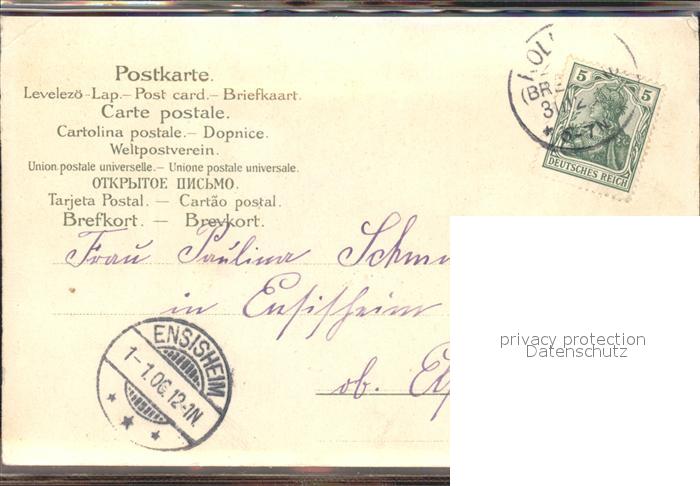 Postkarte.
Levelezö-Lap.– Post card.– Briefkaart.
Carte postale.
Cartolina postale.– Dopnice.
Weltpostverein.
Union postale universelle.– Unione postale universale.
ОТКРЫТОЕ ПИСЬМО.
Tarjeta Postal. — Cartão postal.
Brefkort. — Brevkort.
5 5
DEUTSCHES REICH
Frau Paulina
in Ensisheim
ob.
ENSISHEIM
1–1.06.12-1N.
privacy protection
Datenschutz